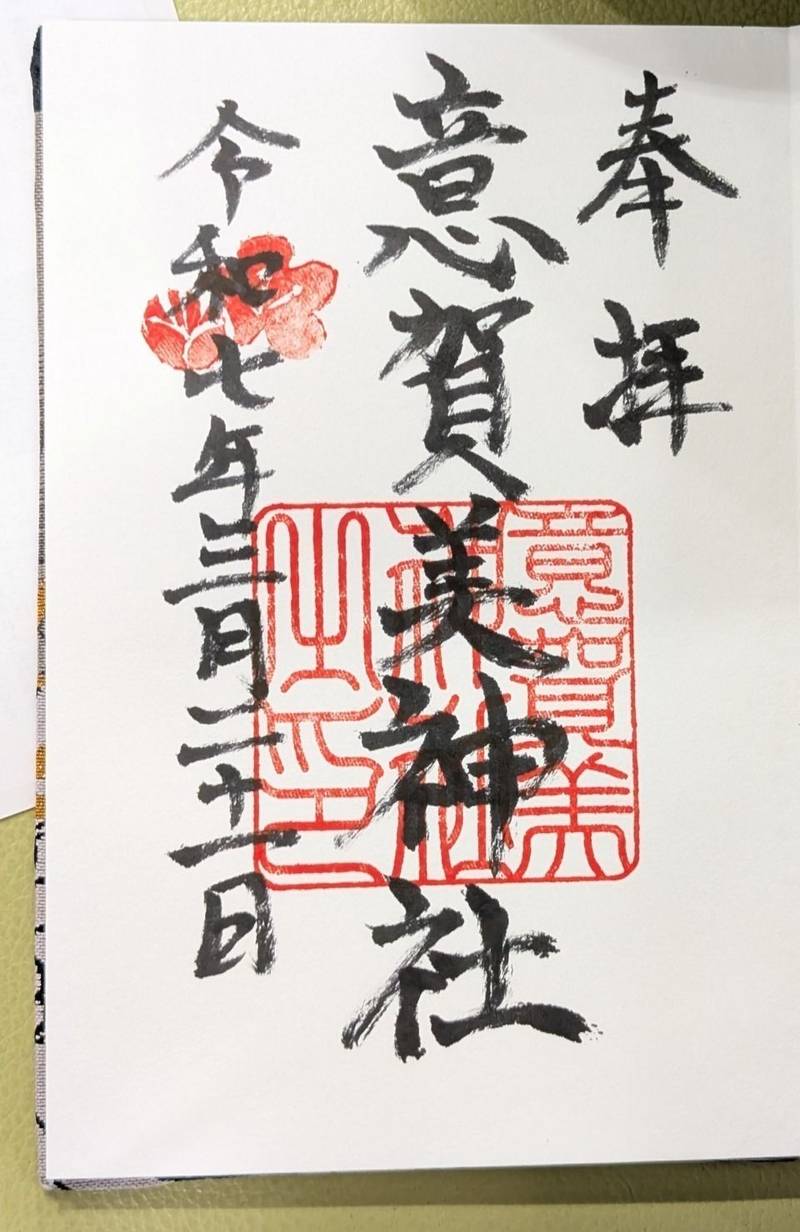 奉拝
意賀美神社
令和七年三月二十一日
意賀美
神社
之印